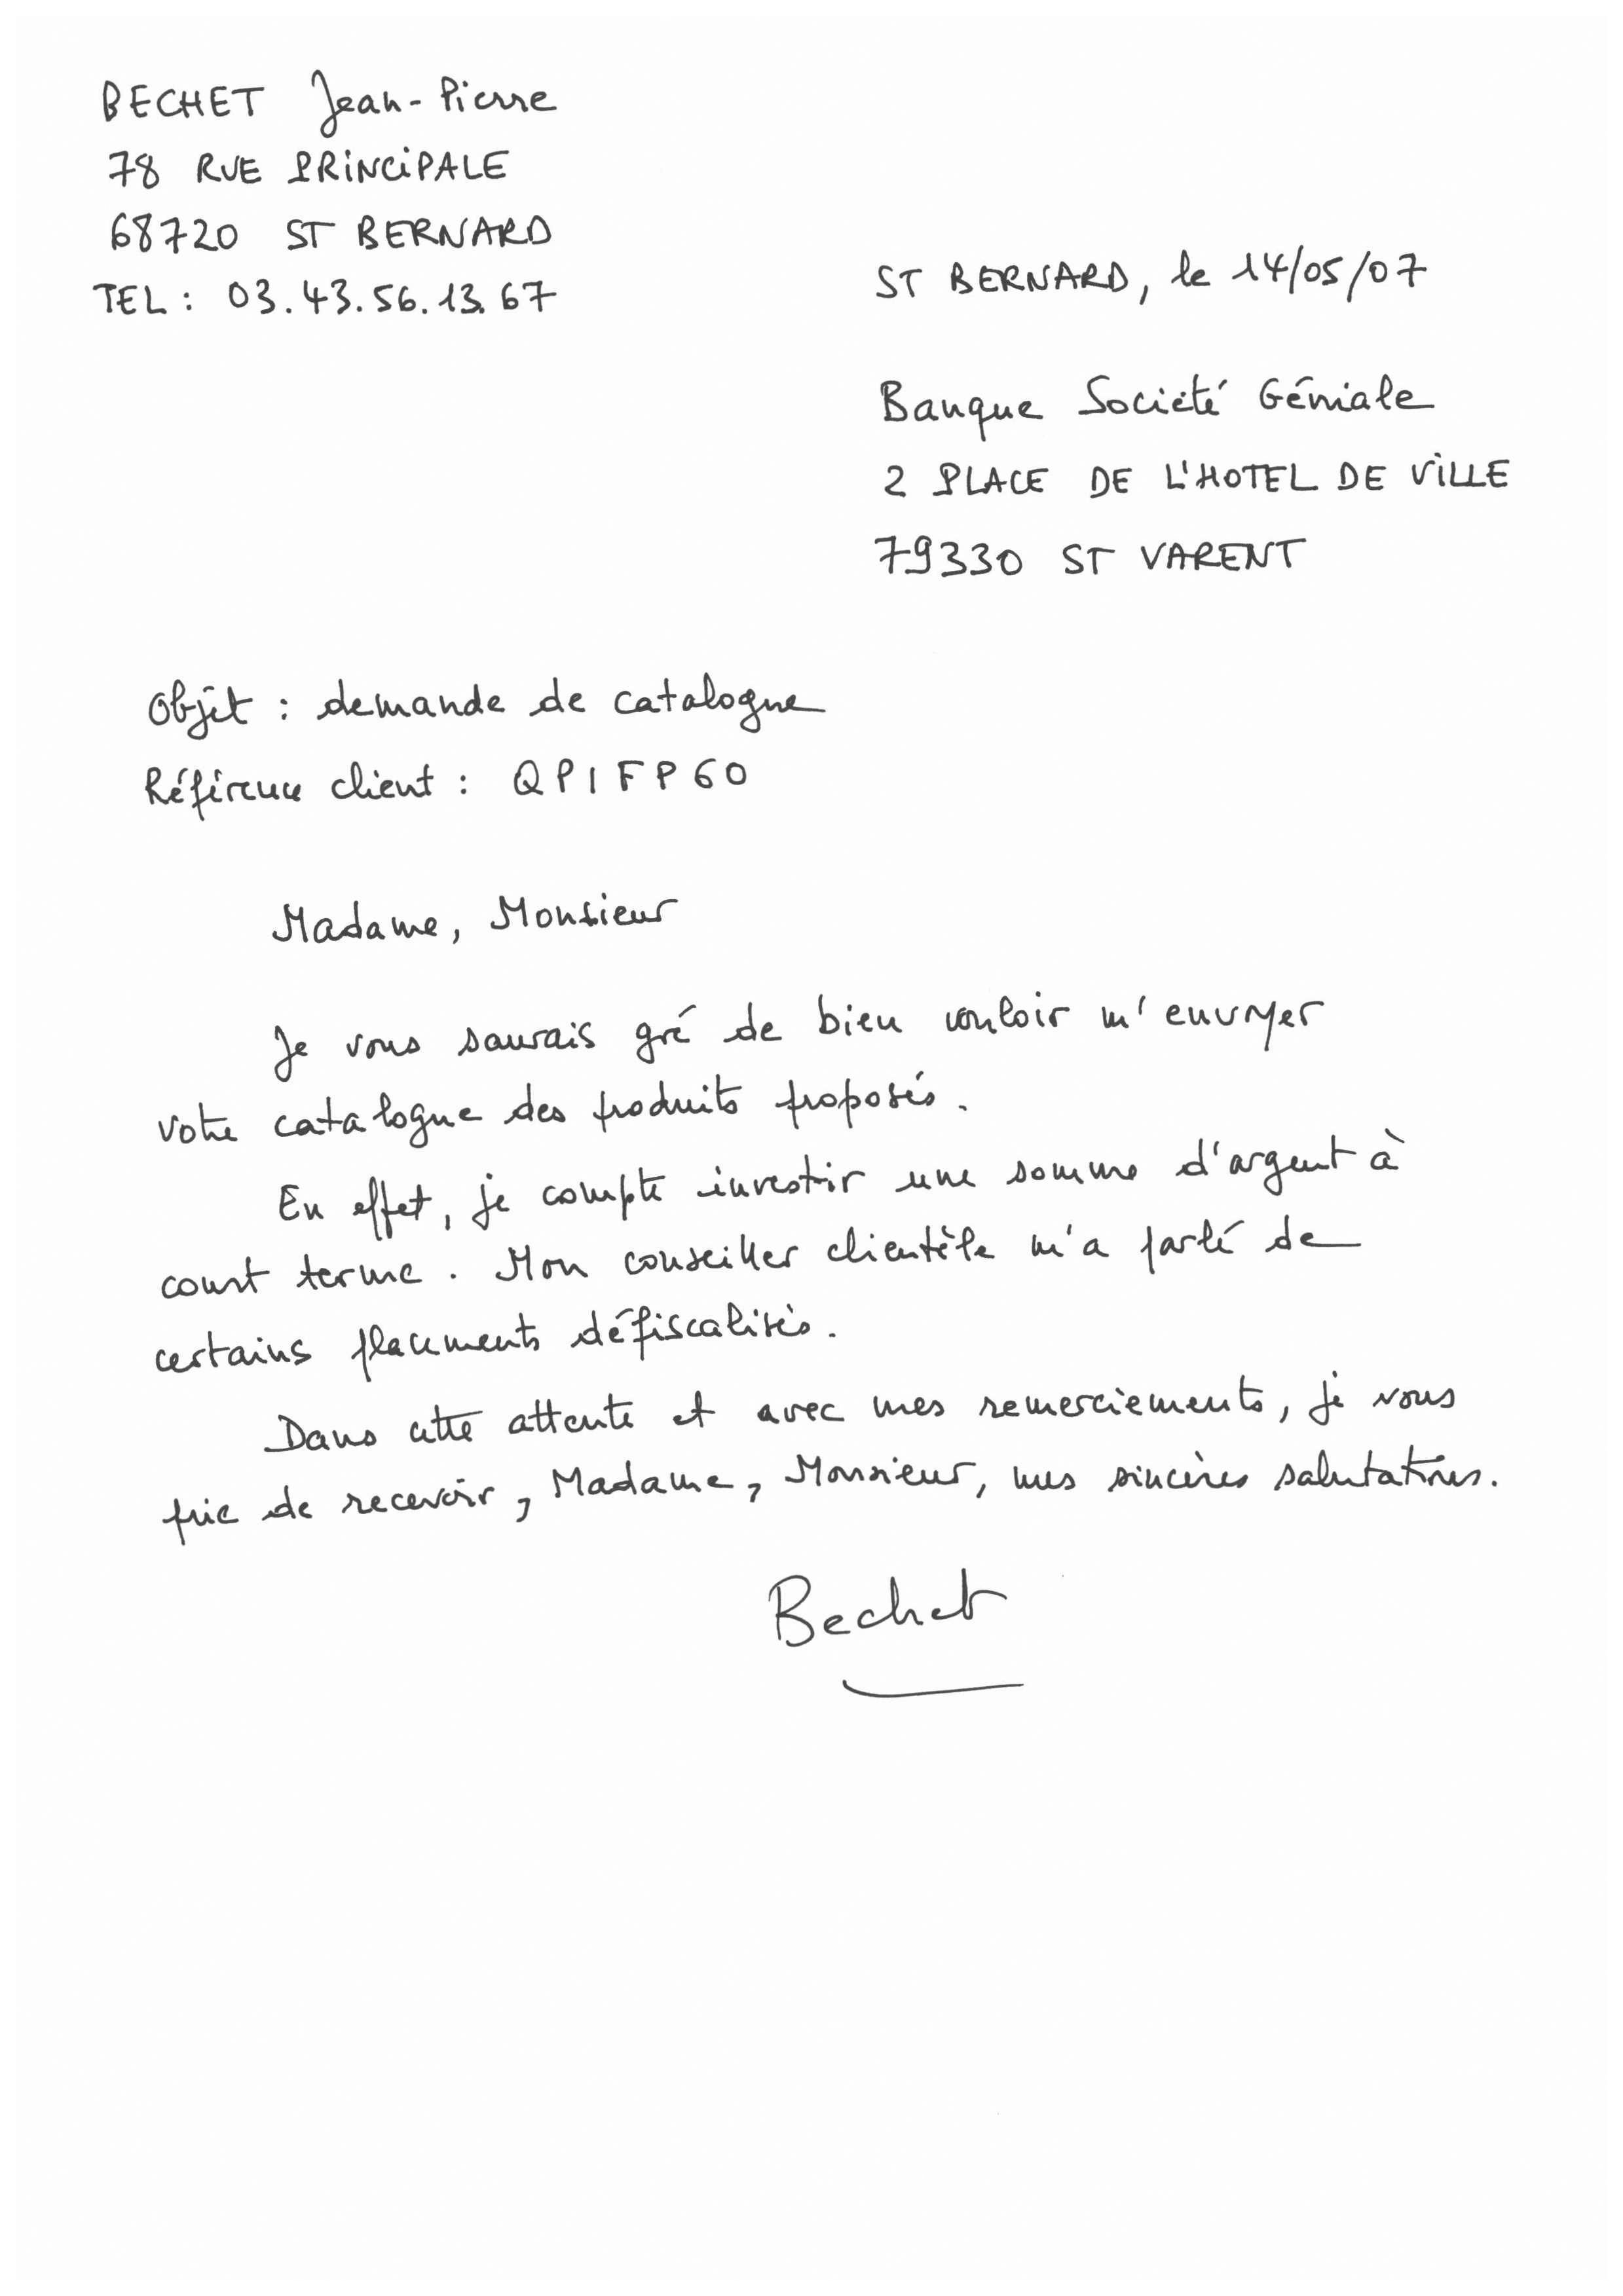 BECHET Jean-Pierre
78 RUE PRINCIPALE
68720 ST BERNARD
TEL : 03.43.56.13.67
ST BERNARD, le 14/05/07
Banque Société Géniale
2 PLACE DE L'HOTEL DE VILLE
79330 ST VARENT
Objet : demande de catalogue
Référence client : QPIFP60
Madame, Monsieur
Je vous saurais gré de bien vouloir m'envoyer
votre catalogue des produits proposés.
En effet, je compte investir une somme d'argent à
court terme. Mon conseiller clientèle m'a parlé de
certains placements défiscalisés.
Dans cette attente et avec mes remerciements, je vous
prie de recevoir, Madame, Monsieur, mes sincères salutations.
Bechet